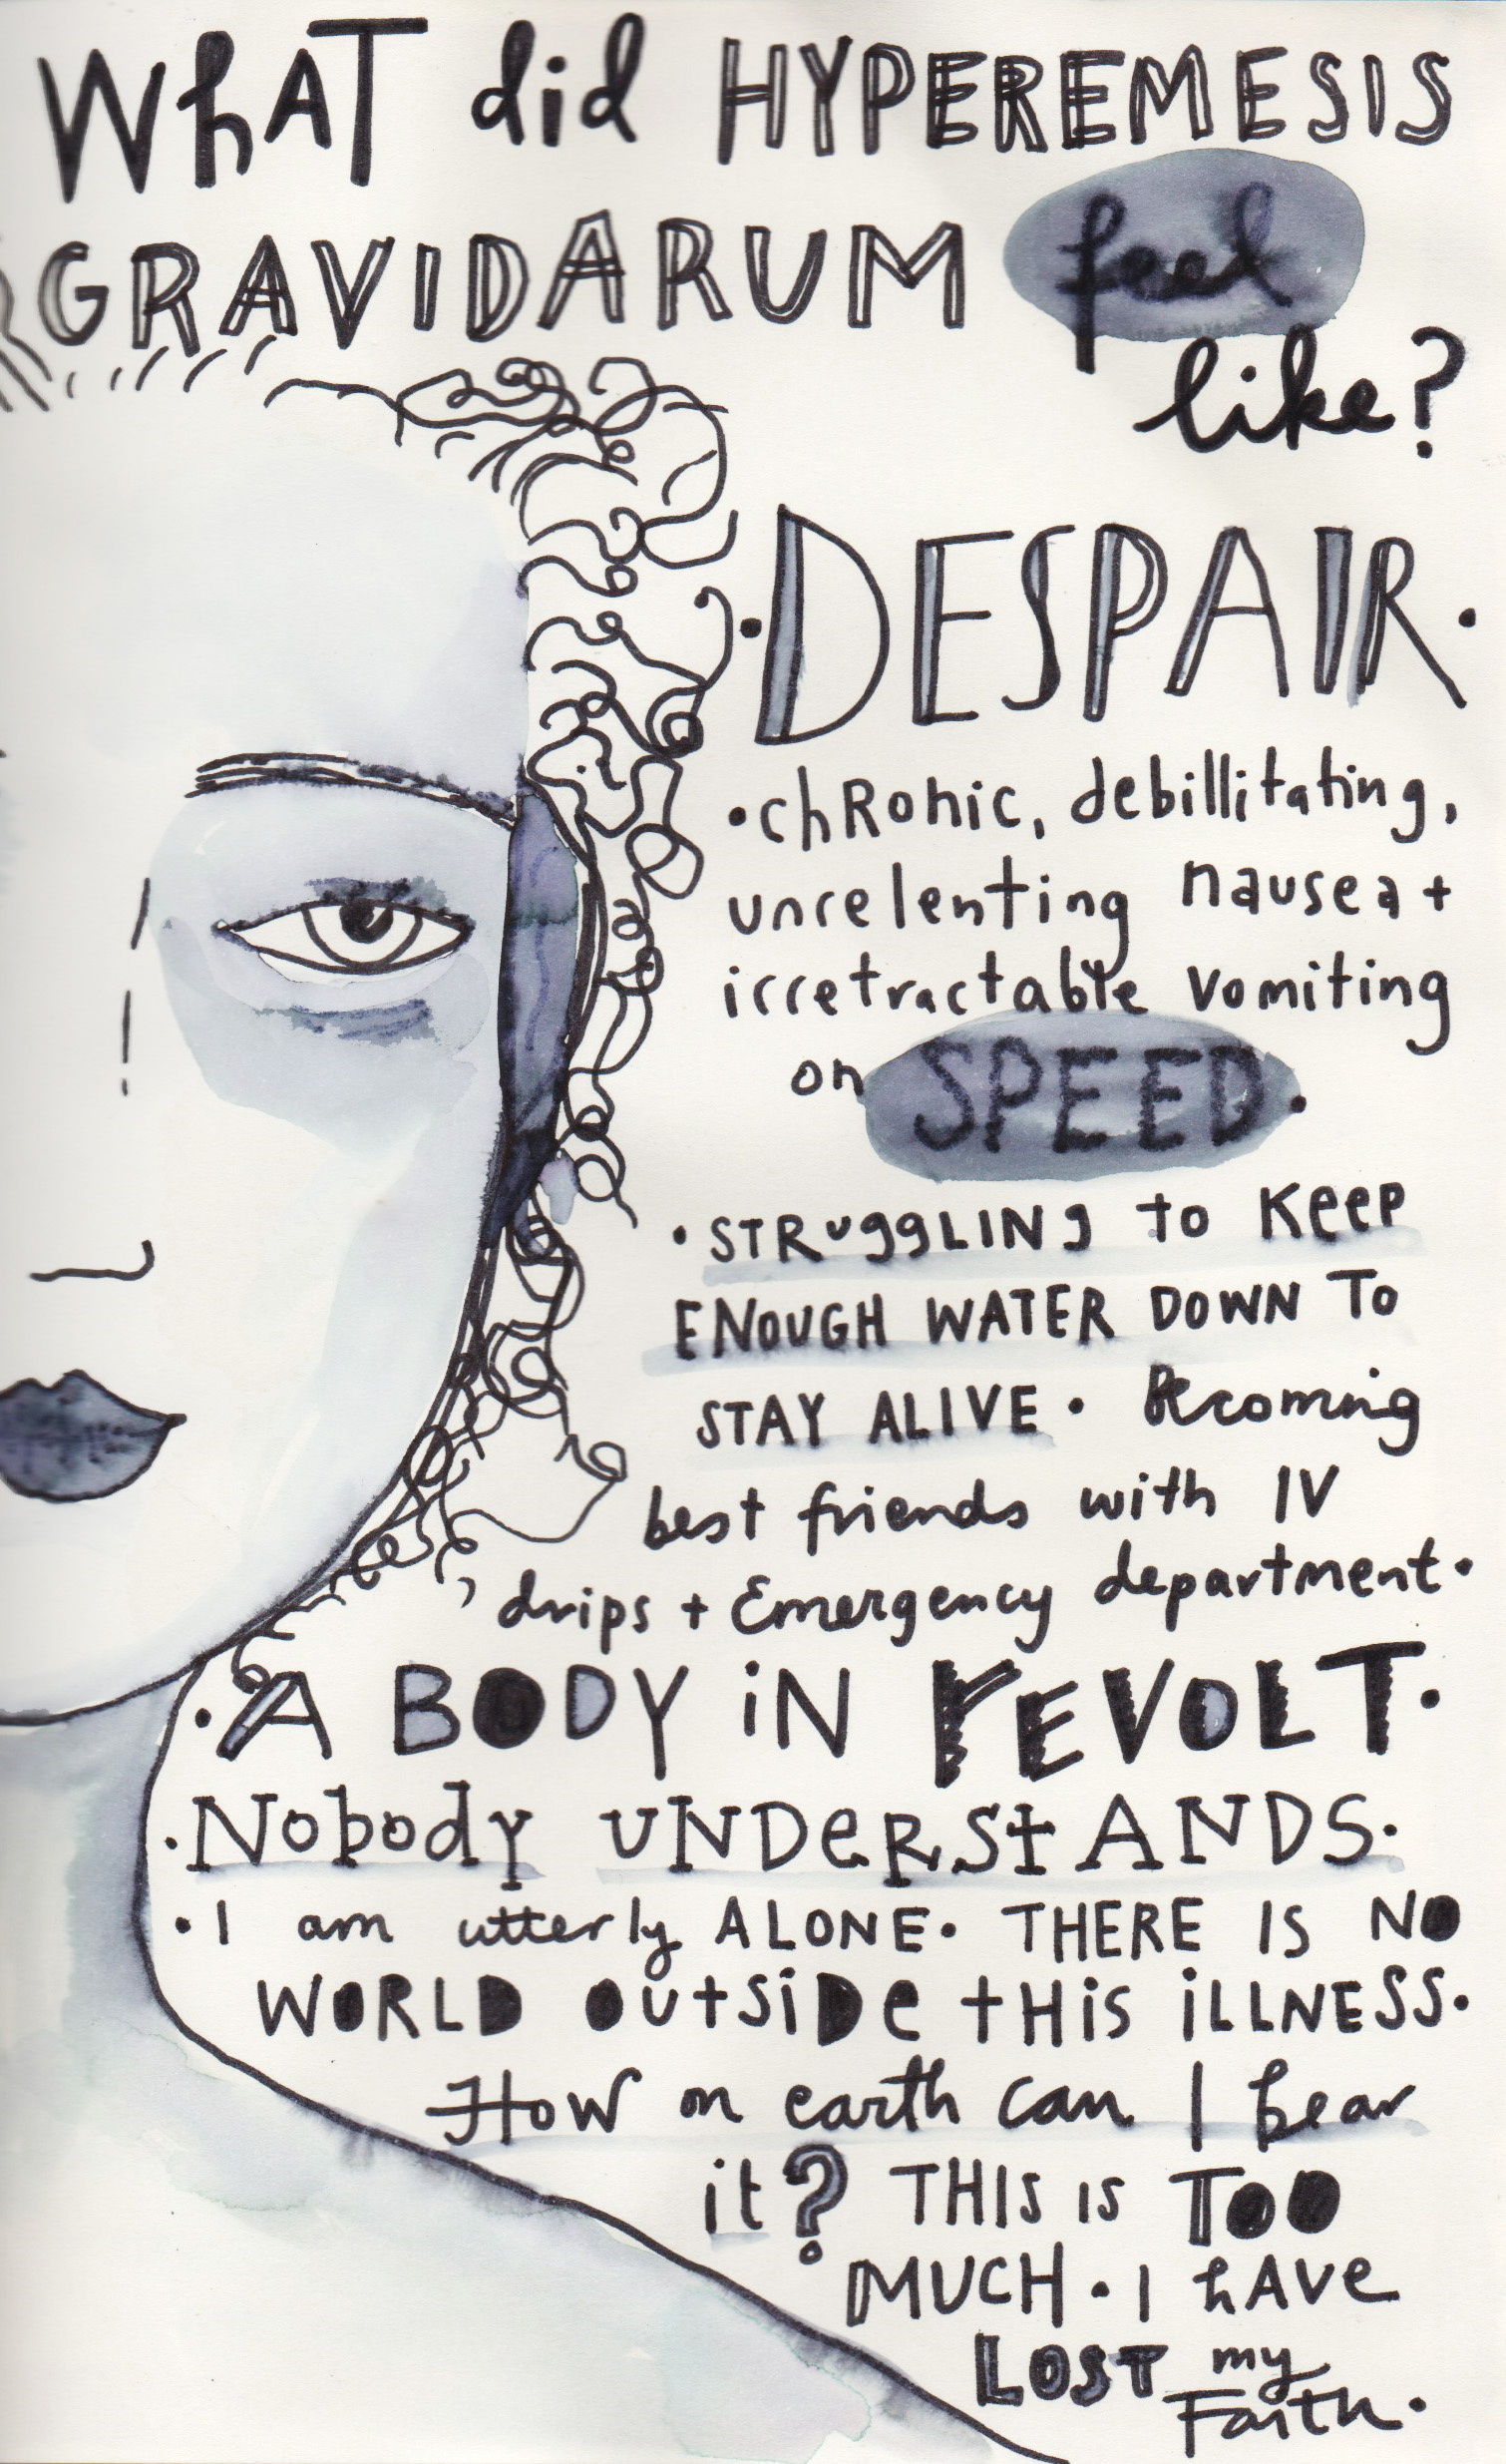 What did HYPEREMESIS
GRAVIDARUM feel
like?
·DESPAIR·
·chRonic, debillitating,
unrelenting nausea +
irretractable vomiting
on SPEED·
·STRuggLINg to KeeP
ENOUGH WATER DOWN TO
STAY ALIVE· Becoming
best friends with IV
drips + Emergency department·
·A BODY iN rEVOLT·
·Nobody UNDeRStANDS·
·I am utterly ALONE· THERE IS NO
WORLD OutSiDe tHiS iLLNESS·
HoW on earth can I bear
it? THIS IS TOO
MUCH· I hAVe
LOST my
Faith·